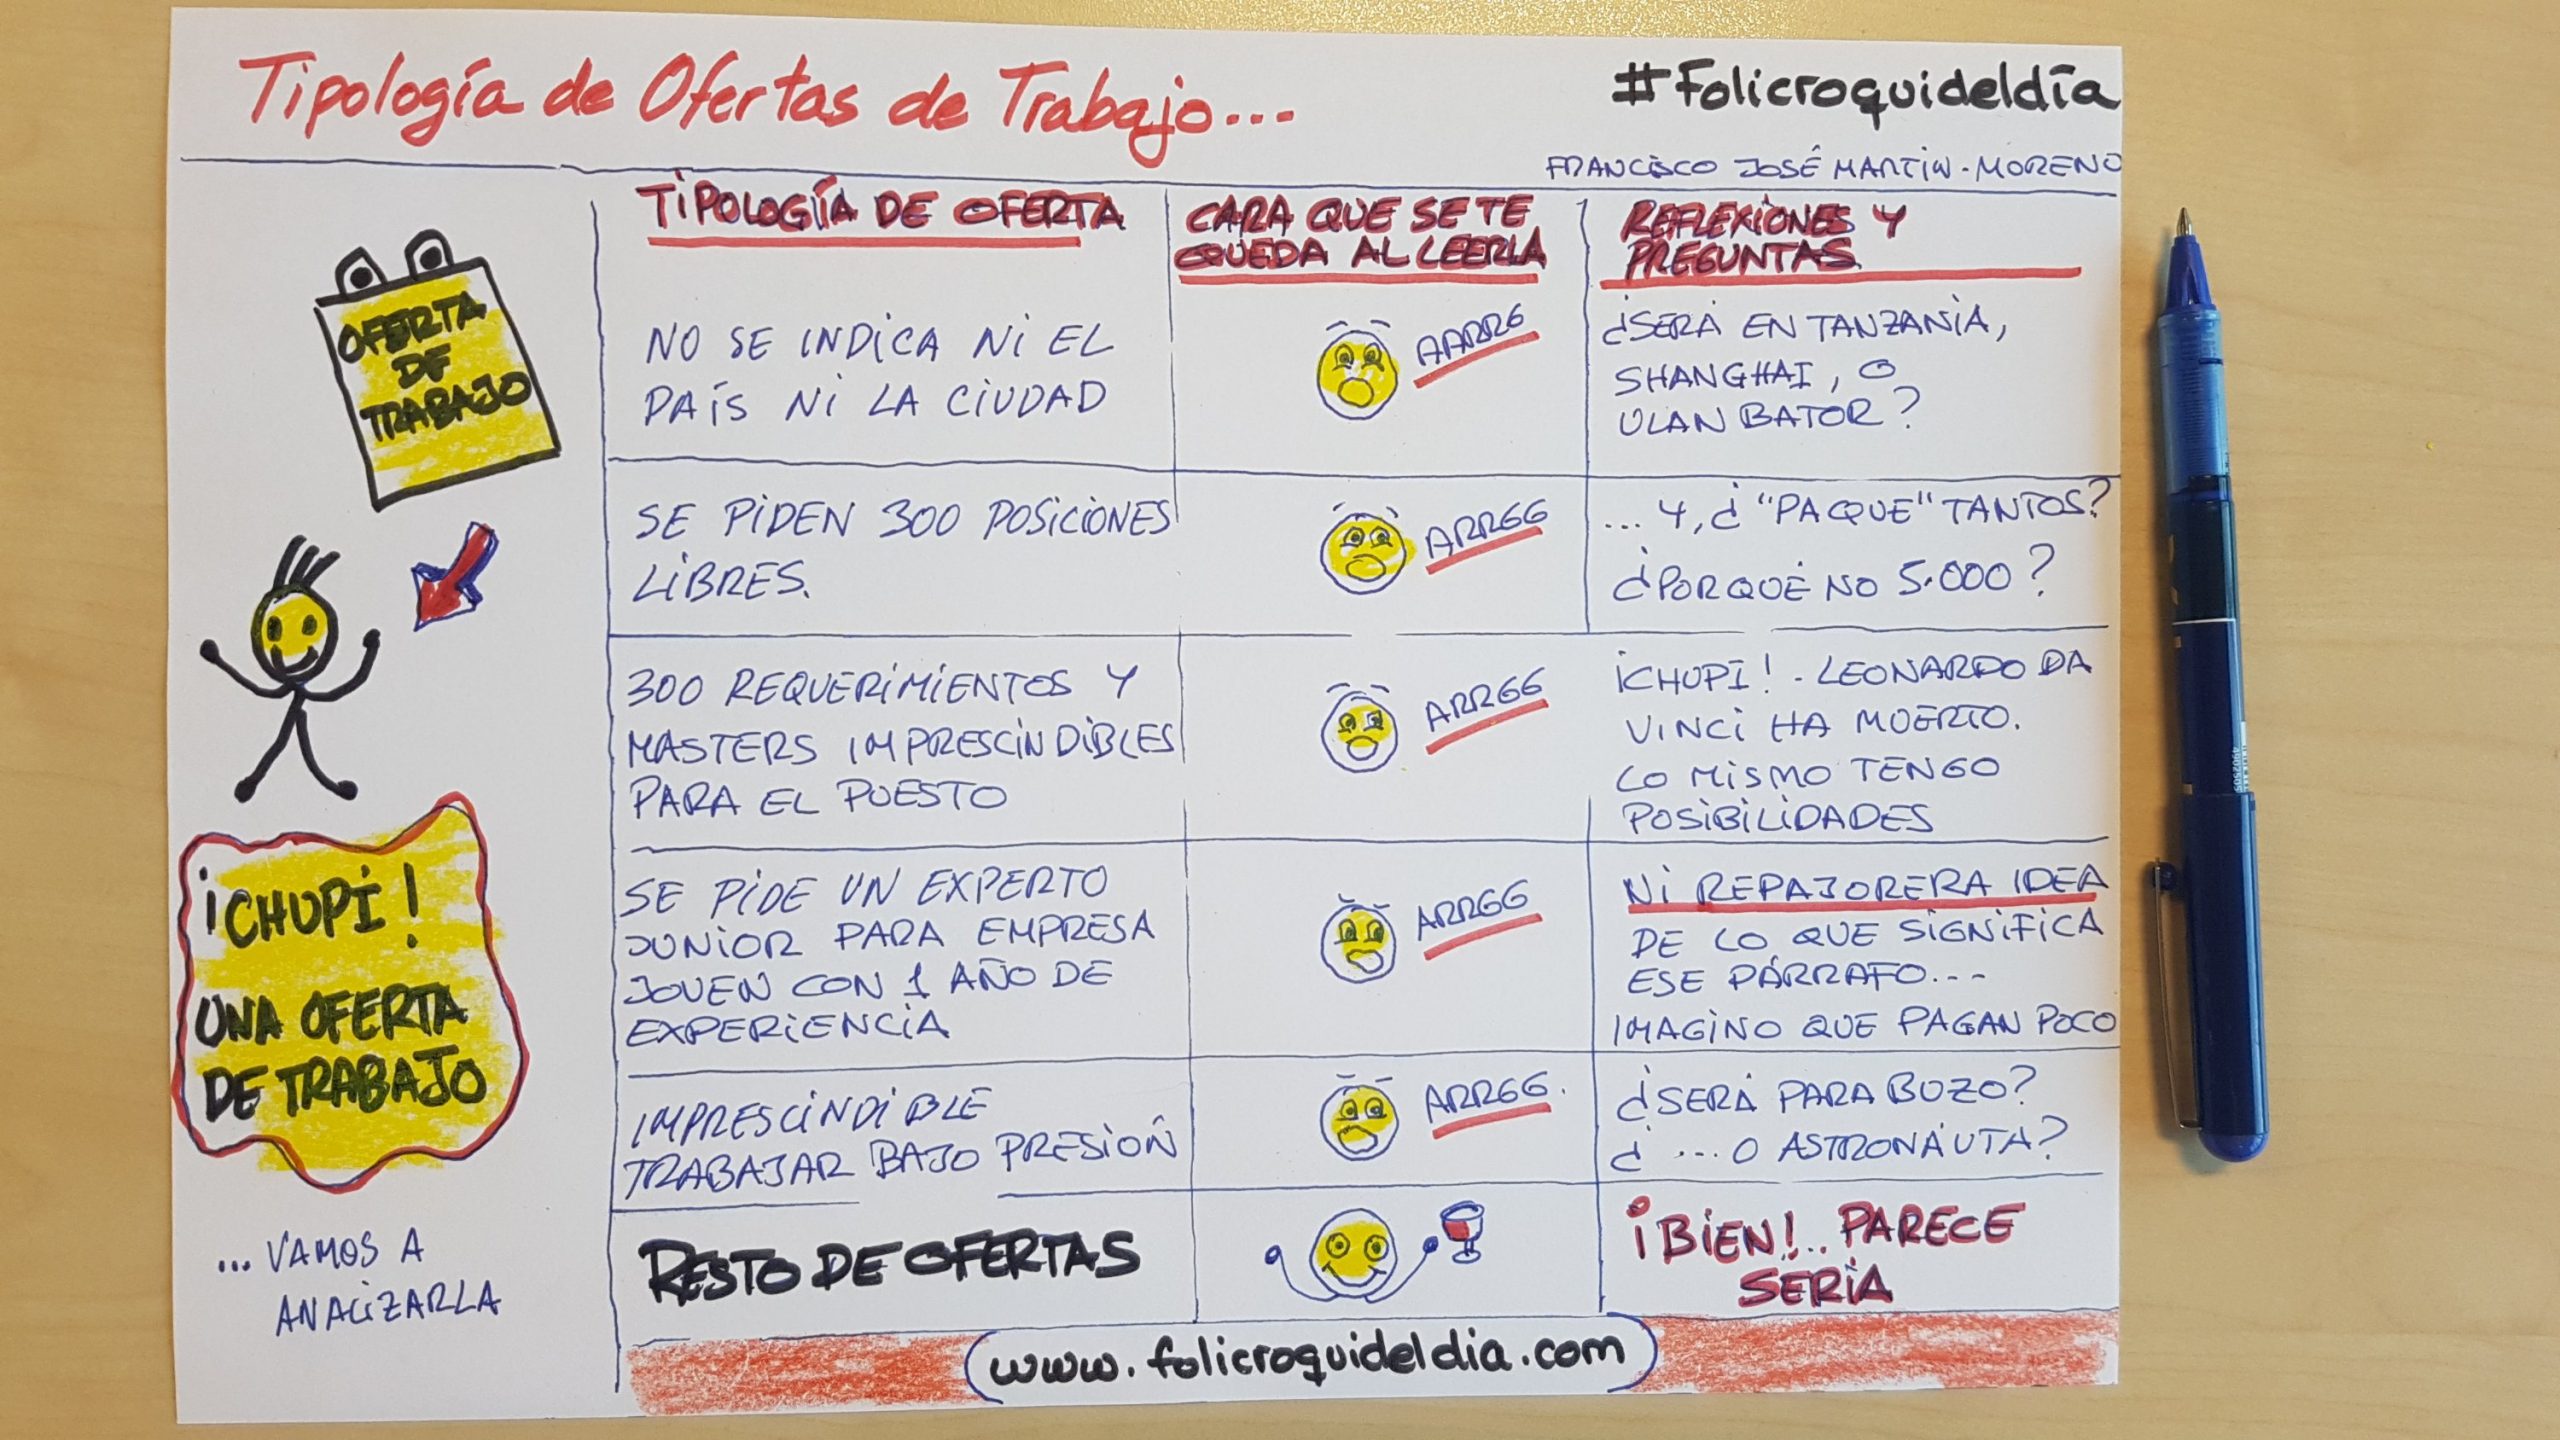 Tipología de Ofertas de Trabajo...
#Folicroquideldía
FRANCISCO JOSÉ MARTIN-MORENO
OFERTA
DE
TRABAJO
¡CHUPI!
UNA OFERTA
DE TRABAJO
...VAMOS A
ANALIZARLA
TIPOLOGÍA DE OFERTA
CARA QUE SE TE
QUEDA AL LEERLA
REFLEXIONES Y
PREGUNTAS
NO SE INDICA NI EL
PAÍS NI LA CIUDAD
AARRG
¿SERÁ EN TANZANIA,
SHANGHAI, O
ULAN BATOR?
SE PIDEN 300 POSICIONES
LIBRES.
ARRGG
... Y, ¿"PAQUE" TANTOS?
¿PORQUÉ NO 5.000?
300 REQUERIMIENTOS Y
MASTERS IMPRESCINDIBLES
PARA EL PUESTO
ARRGG
¡CHUPI!. LEONARDO DA
VINCI HA MUERTO.
LO MISMO TENGO
POSIBILIDADES
SE PIDE UN EXPERTO
JUNIOR PARA EMPRESA
JOVEN CON 1 AÑO DE
EXPERIENCIA
ARRGG
NI REPAJORERA IDEA
DE LO QUE SIGNIFICA
ESE PÁRRAFO...
IMAGINO QUE PAGAN POCO
IMPRESCINDIBLE
TRABAJAR BAJO PRESIÓN
ARRGG.
¿SERÁ PARA BUZO?
¿...O ASTRONAUTA?
RESTO DE OFERTAS
¡BIEN!.. PARECE
SERIA
www.folicroquideldia.com